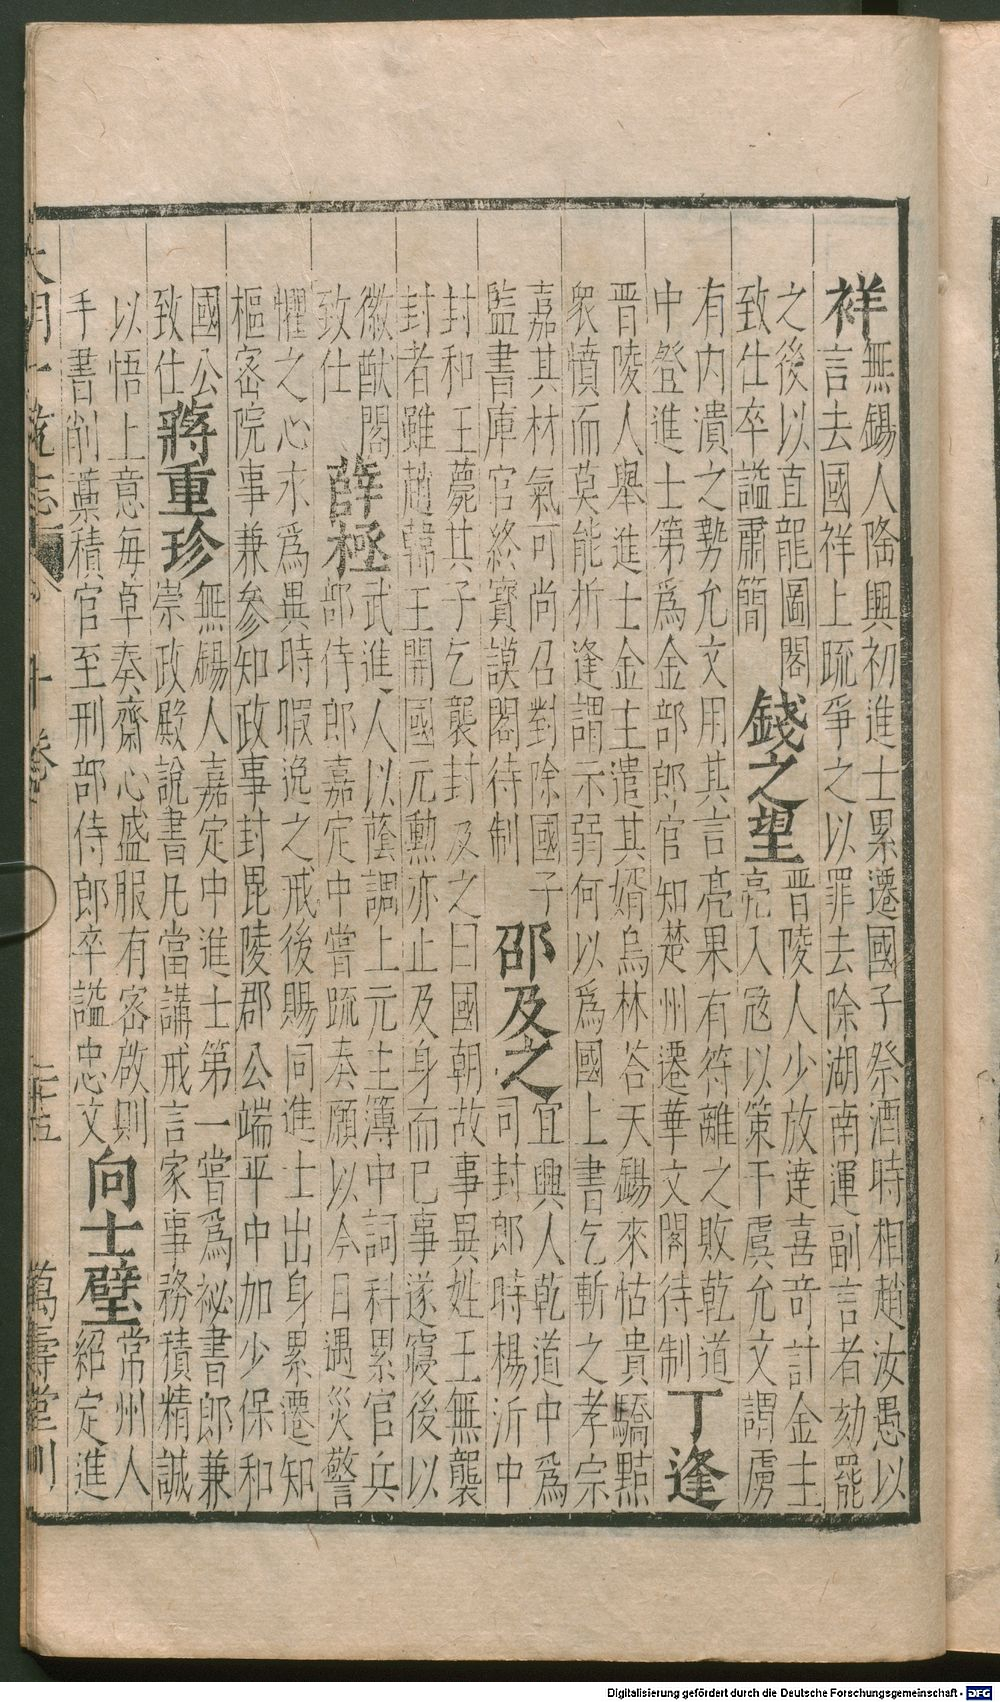 祥
無錫人隆興初進士累遷國子祭酒時相趙汝愚以
言去國祥上疏爭之以罪去除湖南運副言者劾罷
之後以直龍圖閣
致仕卒謚肅簡
錢之望
晋陵人少放達喜奇計金主
亮入㓂以策干虞允文謂虜
有内潰之勢允文用其言亮果有符離之敗乾道
中登進士第爲金部郎官知楚州遷華文閣待制
丁逢
晋陵人舉進士金主遣其婿烏林荅天錫來怙貴驕黠
衆憤而莫能折逢謂示弱何以爲國上書乞斬之孝宗
嘉其材氣可尚召對除國子
監書庫官終寳謨閣待制
邵及之
宜興人乾道中爲
司封郎時楊沂中
封和王薨其子乞襲封及之曰國朝故事異姓王無襲
封者雖趙韓王開國元勲亦止及身而已事遂寢後以
徽猷閣
致仕
薛極
武進人以蔭調上元主簿中詞科累官兵
部侍郎嘉定中嘗疏奏願以今日遇災警
懼之心永爲異時暇逸之戒後賜同進士出身累遷知
樞宻院事兼參知政事封毘陵郡公端平中加少保和
國公
致仕
蔣重珍
無錫人嘉定中進士第一嘗爲祕書郎兼
崇政殿說書凡當講戒言家事務積精誠
以悟上意每草奏齋心盛服有宻啟則
手書削藁積官至刑部侍郎卒謚忠文
向士璧
常州人
紹定進
大明一統志 十卷 二十五 萬壽堂刊
Digitalisierung gefördert durch die Deutsche Forschungsgemeinschaft - DFG